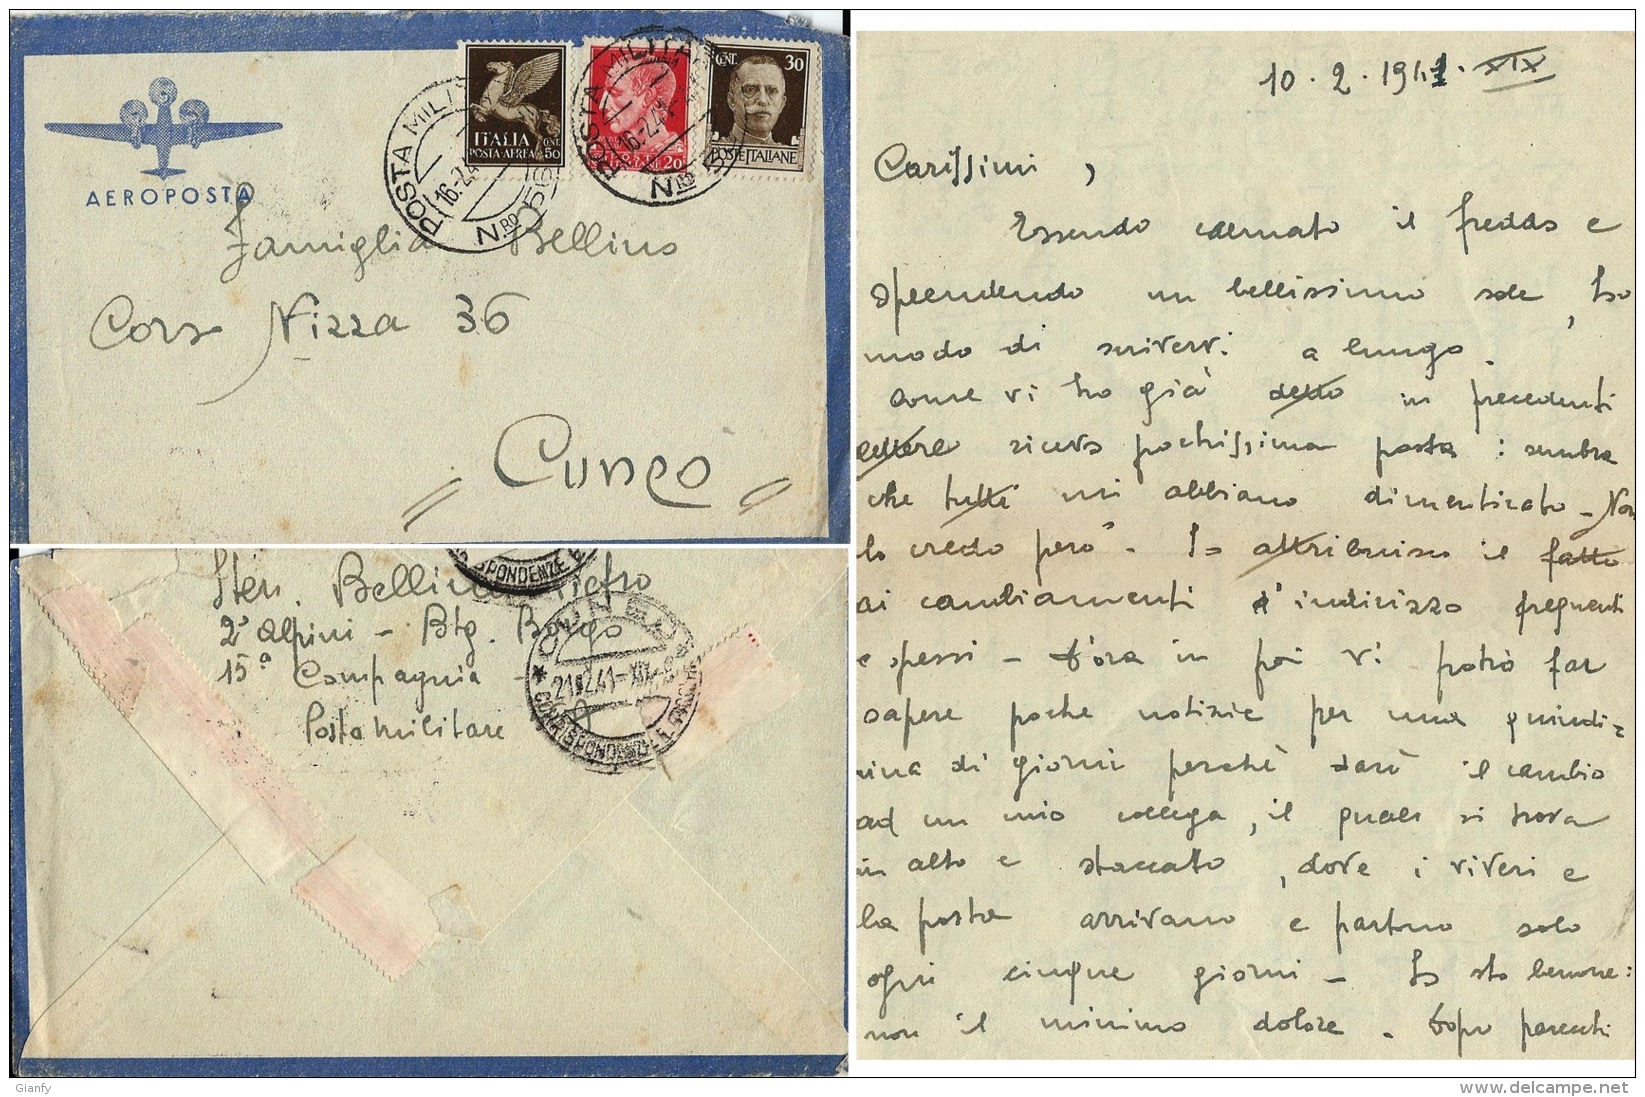 AEROPOSTA
ITALIA
POSTA AEREA
CENT. 50
20
CENT. 30
POSTE ITALIANE
POSTA MILITARE
16.2.41
N.RO 56
POSTA MILITARE
16.2.41
N.RO
Famiglia Bellino
Corso Nizza 36
Cuneo
Sten. Bellino Pietro
2° Alpini - Btg. Borgo
15ª Compagnia -
Posta militare
CORRISPONDENZE E
21.2.41-XIX
CORRISPONDENZE E
10.2.1941. XIX
Carissimi,
Essendo calmato il freddo e
splendendo un bellissimo sole, ho
modo di scrivervi a lungo.
Come vi ho già detto in precedenti
lettere ricevo pochissima posta: sembra
che tutti mi abbiano dimenticato - Non
lo credo però - Io attribuisco il fatto
ai cambiamenti d'indirizzo frequenti
e spessi - D'ora in poi vi potrò far
sapere poche notizie per una quindi=
cina di giorni perchè darò il cambio
ad un mio collega, il quale si trova
in alto e staccato, dove i viveri e
la posta arrivano e partono solo
ogni cinque giorni - Io sto benone:
non il minimo dolore. Dopo parecchi
Gianfy
delcampe.net